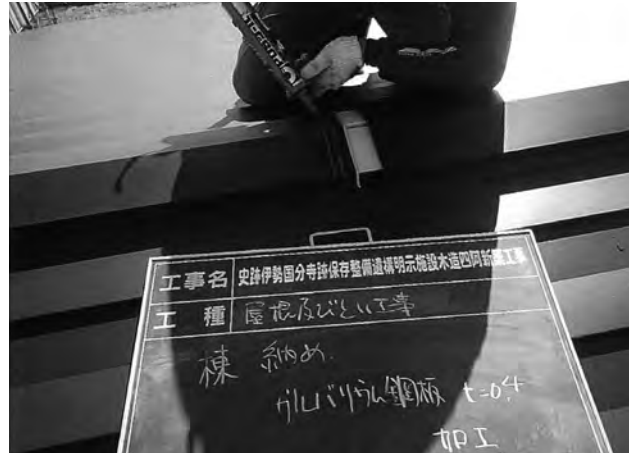 工事名 史跡伊勢国分寺跡保存整備遺構明示施設木造四阿新築工事
工種 屋根及びとい工事
棟 納め.
ガルバリウム鋼板 t=0.4
加工